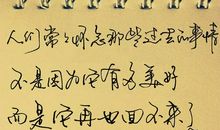 人们常常怀念那些过去的事情
不是因为它有多美好
而是它再也回不来了